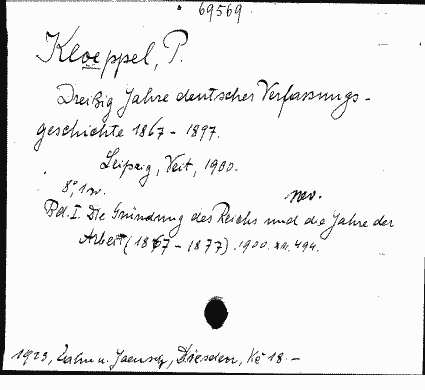 69569.
Kloeppel, P.
Dreißig Jahre deutscher Verfassungs-
geschichte 1867 - 1897.
Leipzig, Veit, 1900.
8°, 1 w.
rev.
Bd. I. Die Gründung des Reichs und die Jahre der
Arbeit (1867 - 1877). 1900. XII. 494.
1923, Zahn u. Jaensch, Dresden, Kč 18.-